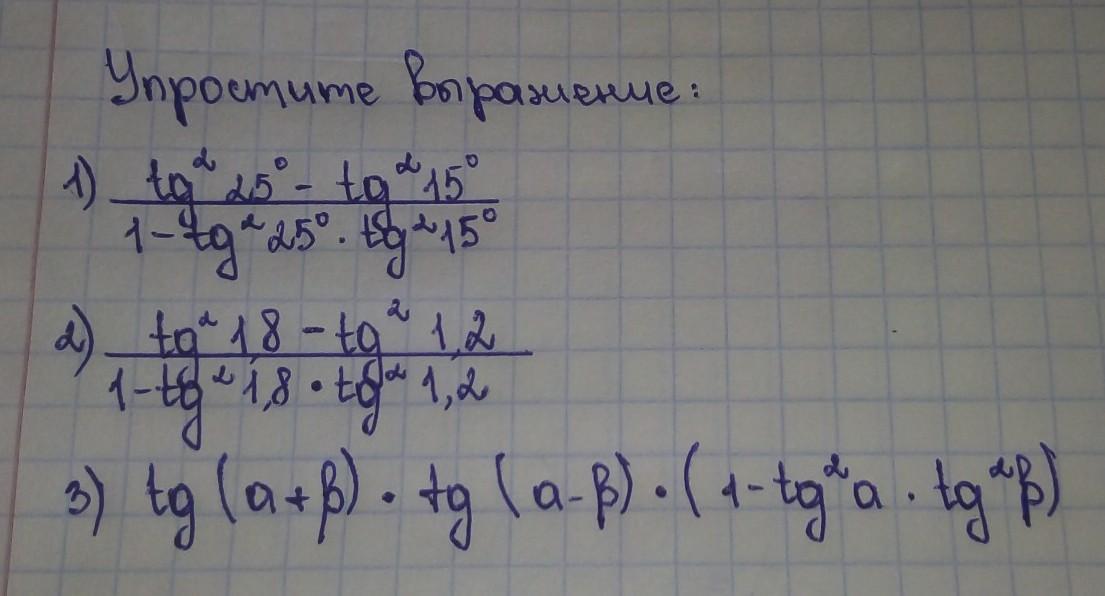 Упростите выражение:
1) tg² 25° - tg² 15°
1 - tg² 25° · tg² 15°
2) tg² 1,8 - tg² 1,2
1 - tg² 1,8 · tg² 1,2
3) tg (a + β) · tg (a - β) · (1 - tg² a · tg² β)